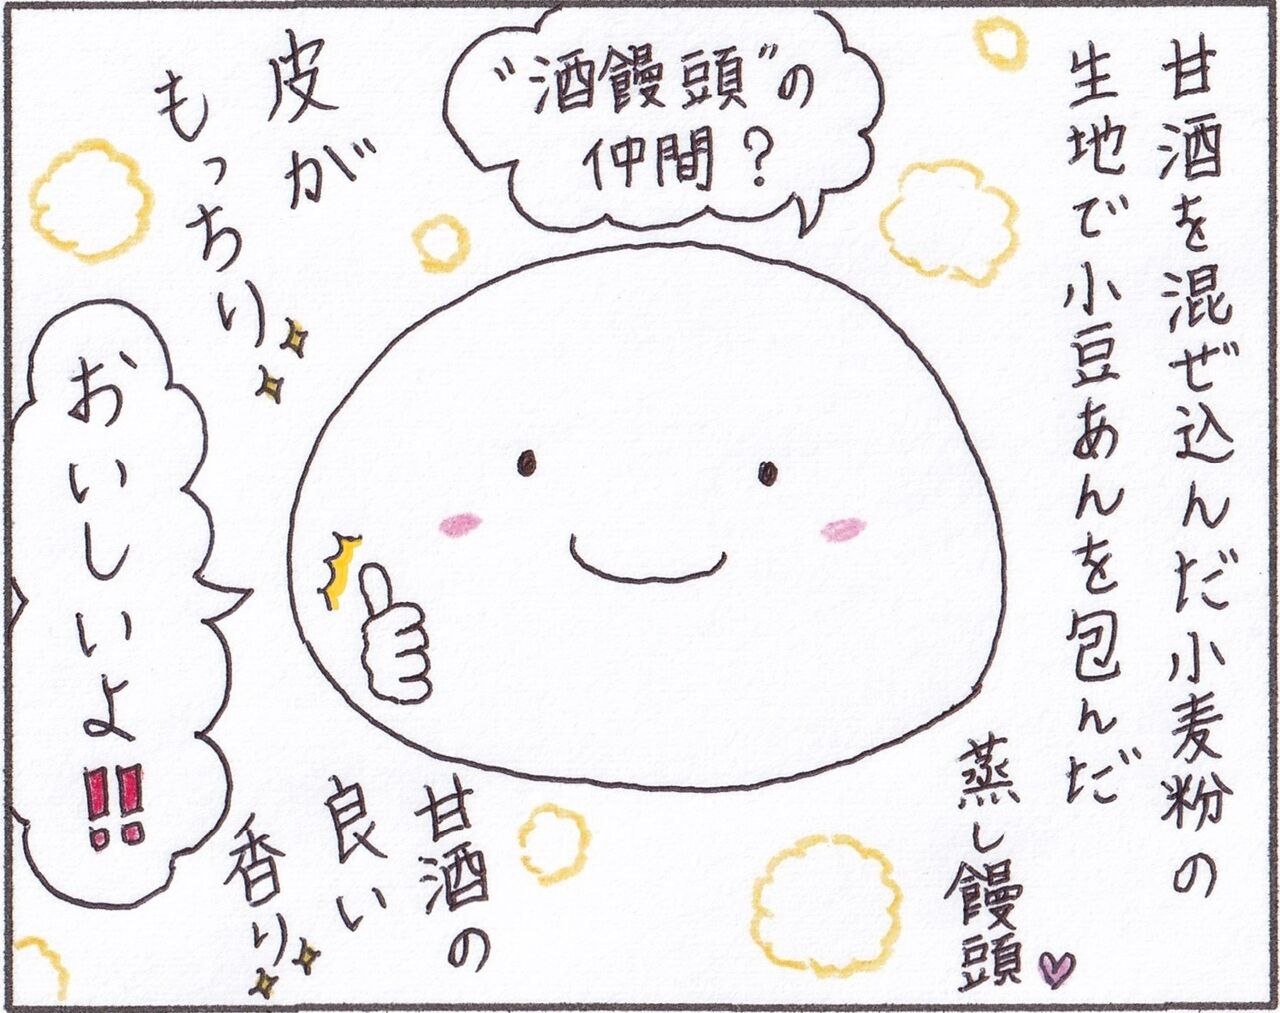 甘酒を混ぜ込んだ小麦粉の
生地で小豆あんを包んだ
蒸し饅頭
“酒饅頭”の
仲間?
皮が
もっちり
甘酒の
良い
香り
おいしいよ!!